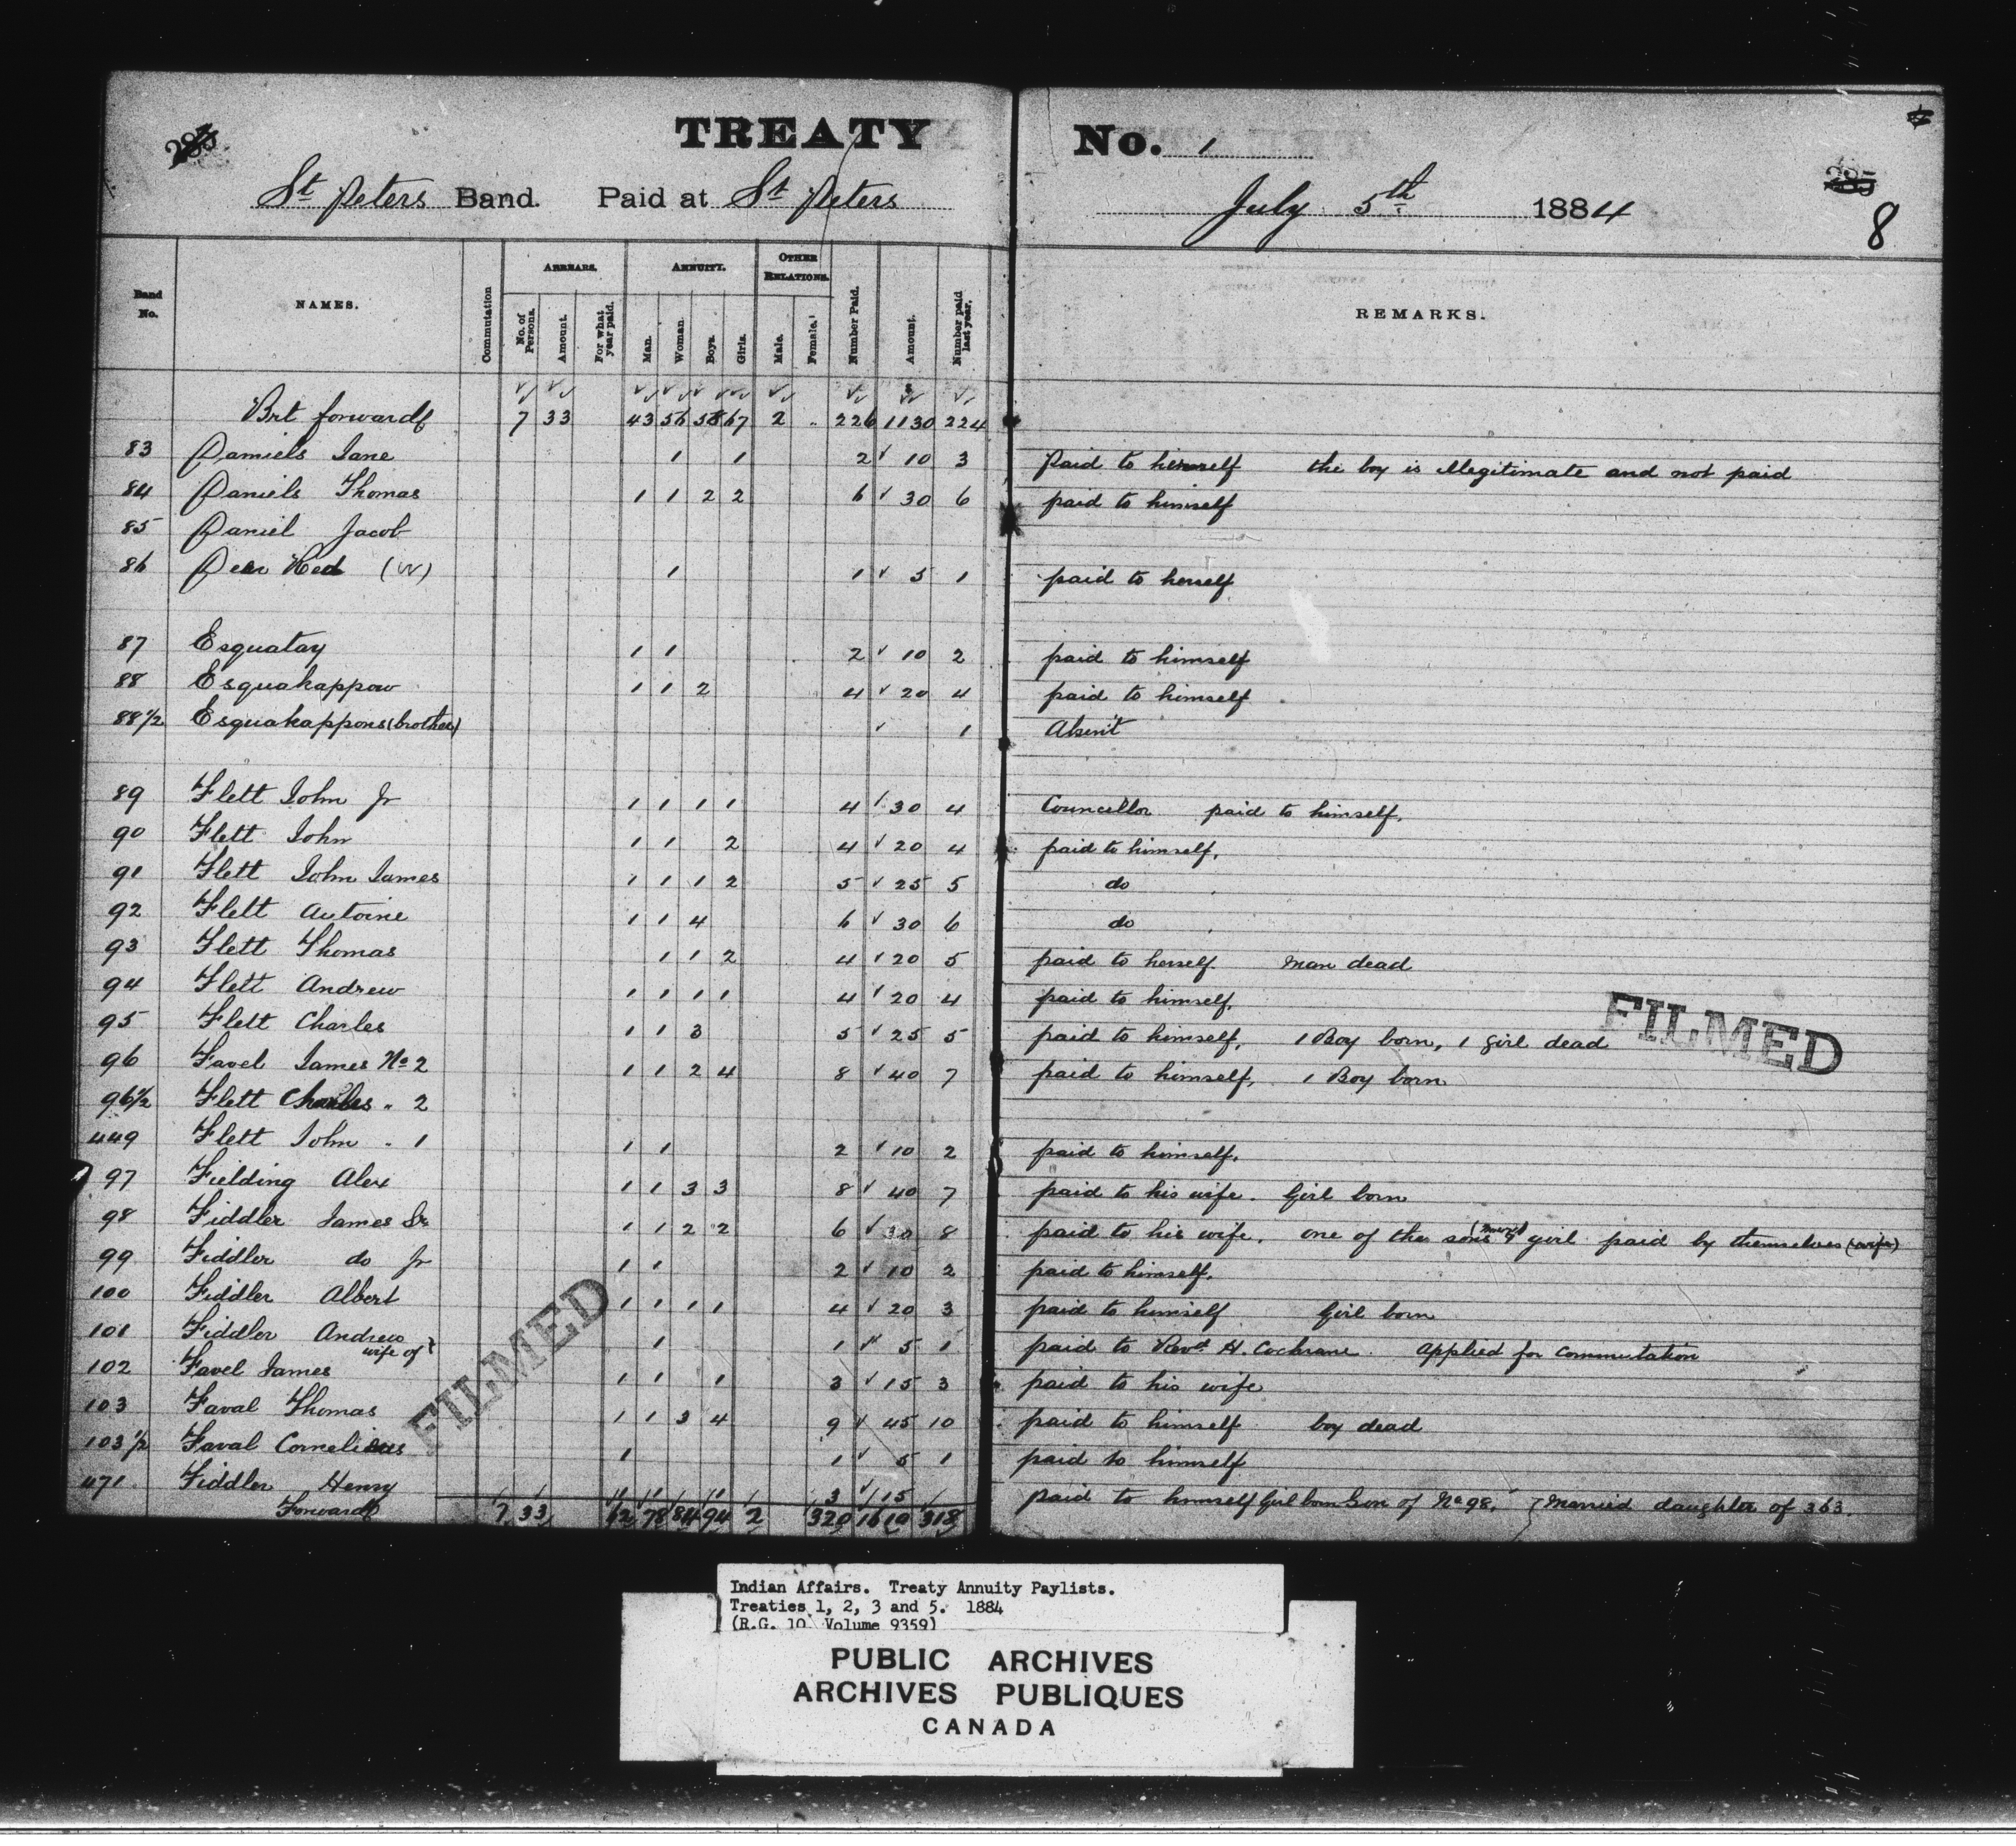 285
TREATY No. 1
St Peters Band. Paid at St Peters July 5th 1884
285
8
Band No. NAMES. Commutation ARREARS. No. of Persons. Amount. For what year paid. ANNUITY. Man. Woman. Boys. Girls. OTHER RELATIONS. Male. Female. Number Paid. Amount. Number paid last year. REMARKS.
Brt forward 7 33 43 56 58 67 2 " 226 1130 224
83 Daniels Jane 1 1 2 10 3 Paid to herself the boy is illegitimate and not paid
84 Daniels Thomas 1 1 2 2 6 30 6 paid to himself
85 Daniel Jacob
86 Deer Hed (W) 1 1 5 1 paid to herself
87 Esquatay 1 1 2 10 2 paid to himself
88 Esquakappow 1 1 2 4 20 4 paid to himself
88 1/2 Esquakappons (brother) 1 Absent
89 Flett John Jr 1 1 1 1 4 30 4 Councellor paid to himself.
90 Flett John 1 1 2 4 20 4 paid to himself.
91 Flett John James 1 1 1 2 5 25 5 do
92 Flett Antoine 1 1 4 6 30 6 do
93 Flett Thomas 1 1 2 4 20 5 paid to herself. Man dead
94 Flett Andrew 1 1 1 1 4 20 4 paid to himself.
95 Flett Charles 1 1 3 5 25 5 paid to himself. 1 Boy born, 1 girl dead
96 Favel James No 2 1 1 2 4 8 40 7 paid to himself. 1 Boy born
96 1/2 Flett Charles " 2
449 Flett John " 1 1 1 2 10 2 paid to himself.
97 Fielding Alex 1 1 3 3 8 40 7 paid to his wife. Girl born
98 Fiddler James Sr 1 1 2 2 6 30 8 paid to his wife. one of the sons & girl paid by themselves (wife)
99 Fiddler do Jr 1 1 2 10 2 paid to himself.
100 Fiddler Albert 1 1 1 1 4 20 3 paid to himself Girl born
101 Fiddler Andrew wife of 1 1 5 1 paid to Revd H. Cochrane. Applied for commutation
102 Favel James 1 1 1 3 15 3 paid to his wife
103 Faval Thomas 1 1 3 4 9 45 10 paid to himself boy dead
103 1/2 Faval Cornelius 1 1 5 1 paid to himself
471 Fiddler Henry 3 15 paid to himself Girl born Son of No 98, Married daughter of 363.
Forward 7 33 62 78 84 94 2 320 1610 318
FILMED
FILMED
Indian Affairs. Treaty Annuity Paylists.
Treaties 1, 2, 3 and 5. 1884
(R.G. 10 Volume 9359)
PUBLIC ARCHIVES
ARCHIVES PUBLIQUES
CANADA